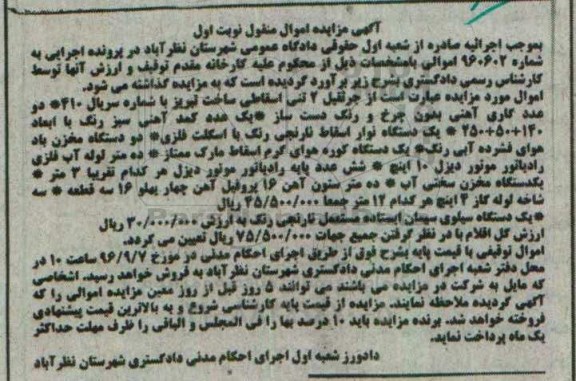 آگهی مزایده اموال منقول نوبت اول
بموجب اجرائیه صادره از شعبه اول حقوقی دادگاه عمومی شهرستان نظرآباد در پرونده اجرایی به
شماره ۹۶۰۶۰۲ اموالی بامشخصات ذیل از محکوم علیه کارخانه مقدم توقیف و ارزش آنها توسط
کارشناس رسمی دادگستری بشرح زیر برآورد گردیده است که به مزایده گذاشته می شود.
اموال مورد مزایده عبارت است از جرثقیل ۲ تنی اسقاطی ساخت تبریز با شماره سریال ۴۱۰* دو
عدد گاری آهنی بدون چرخ و رنگ دست ساز *یک عدد کمد آهنی سبز رنگ با ابعاد
۱۴۰*۵۰*۲۵۰ * یک دستگاه نوار اسقاط نارنجی رنگ با اسکلت فلزی* دو دستگاه مخزن باد
هوای فشرده آبی رنگ* یک دستگاه کوره هوای گرم اسقاط مارک ممتاز* ده متر لوله آب فلزی
رادیاتور موتور دیزل ۱۰ اینچ * شش عدد پایه رادیاتور موتور دیزل هر کدام تقریبا ۳ متر *
یکدستگاه مخزن سختی آب * ده متر ستون آهن ۱۶ پروفیل آهن چهار پهلو ۱۶ سه قطعه * سه
شاخه لوله گاز ۴ اینچ هر کدام ۱۲ متر جمعا ۴۵/۵۰۰/۰۰۰ ریال
*یک دستگاه سیلوی سیمان ایستاده مستعمل نارنجی رنگ به ارزش ۳۰/۰۰۰/۰۰۰ ریال
ارزش کل اقلام با در نظر گرفتن جمیع جهات ۷۵/۵۰۰/۰۰۰ ریال تعیین می گردد.
اموال توقیفی با قیمت پایه بشرح فوق از طریق اجرای احکام مدنی در مورخ ۹۶/۹/۷ ساعت ۱۰ در
محل دفتر شعبه اجرای احکام مدنی دادگستری شهرستان نظرآباد به فروش خواهد رسید. اشخاصی
که مایل به شرکت در مزایده می باشند می توانند ۵ روز قبل از روز معین مزایده اموالی را که
آگهی گردیده ملاحظه نمایند. مزایده از قیمت پایه کارشناسی شروع و به بالاترین قیمت پیشنهادی
فروخته خواهد شد. برنده مزایده باید ۱۰ درصد بها را فی المجلس و الباقی را ظرف مهلت حداکثر
یک ماه پرداخت نماید.
دادورز شعبه اول اجرای احکام مدنی دادگستری شهرستان نظرآباد